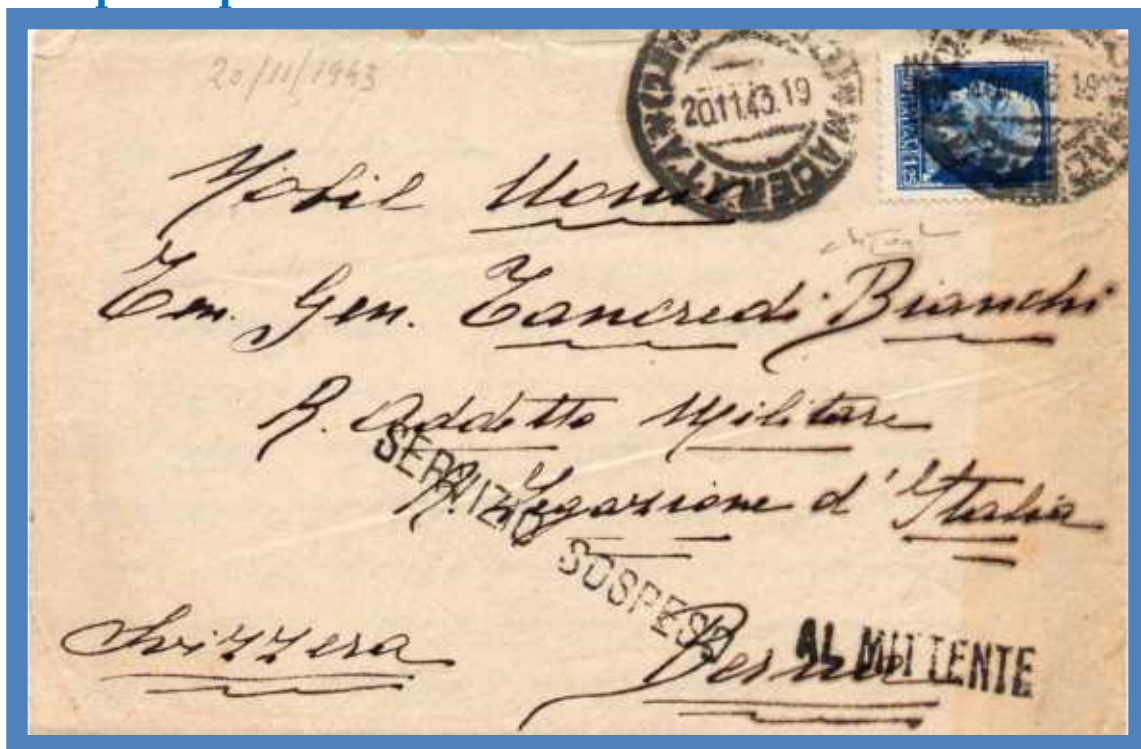 20/11/1943
MACERATA
20.11.43.19
1,25
Nobil Uomo
Ten. Gen. Tancredi Bianchi
R. Addetto Militare
R. Legazione d'Italia
SERVIZIO SOSPESO
Svizzera Berna
AL MITTENTE